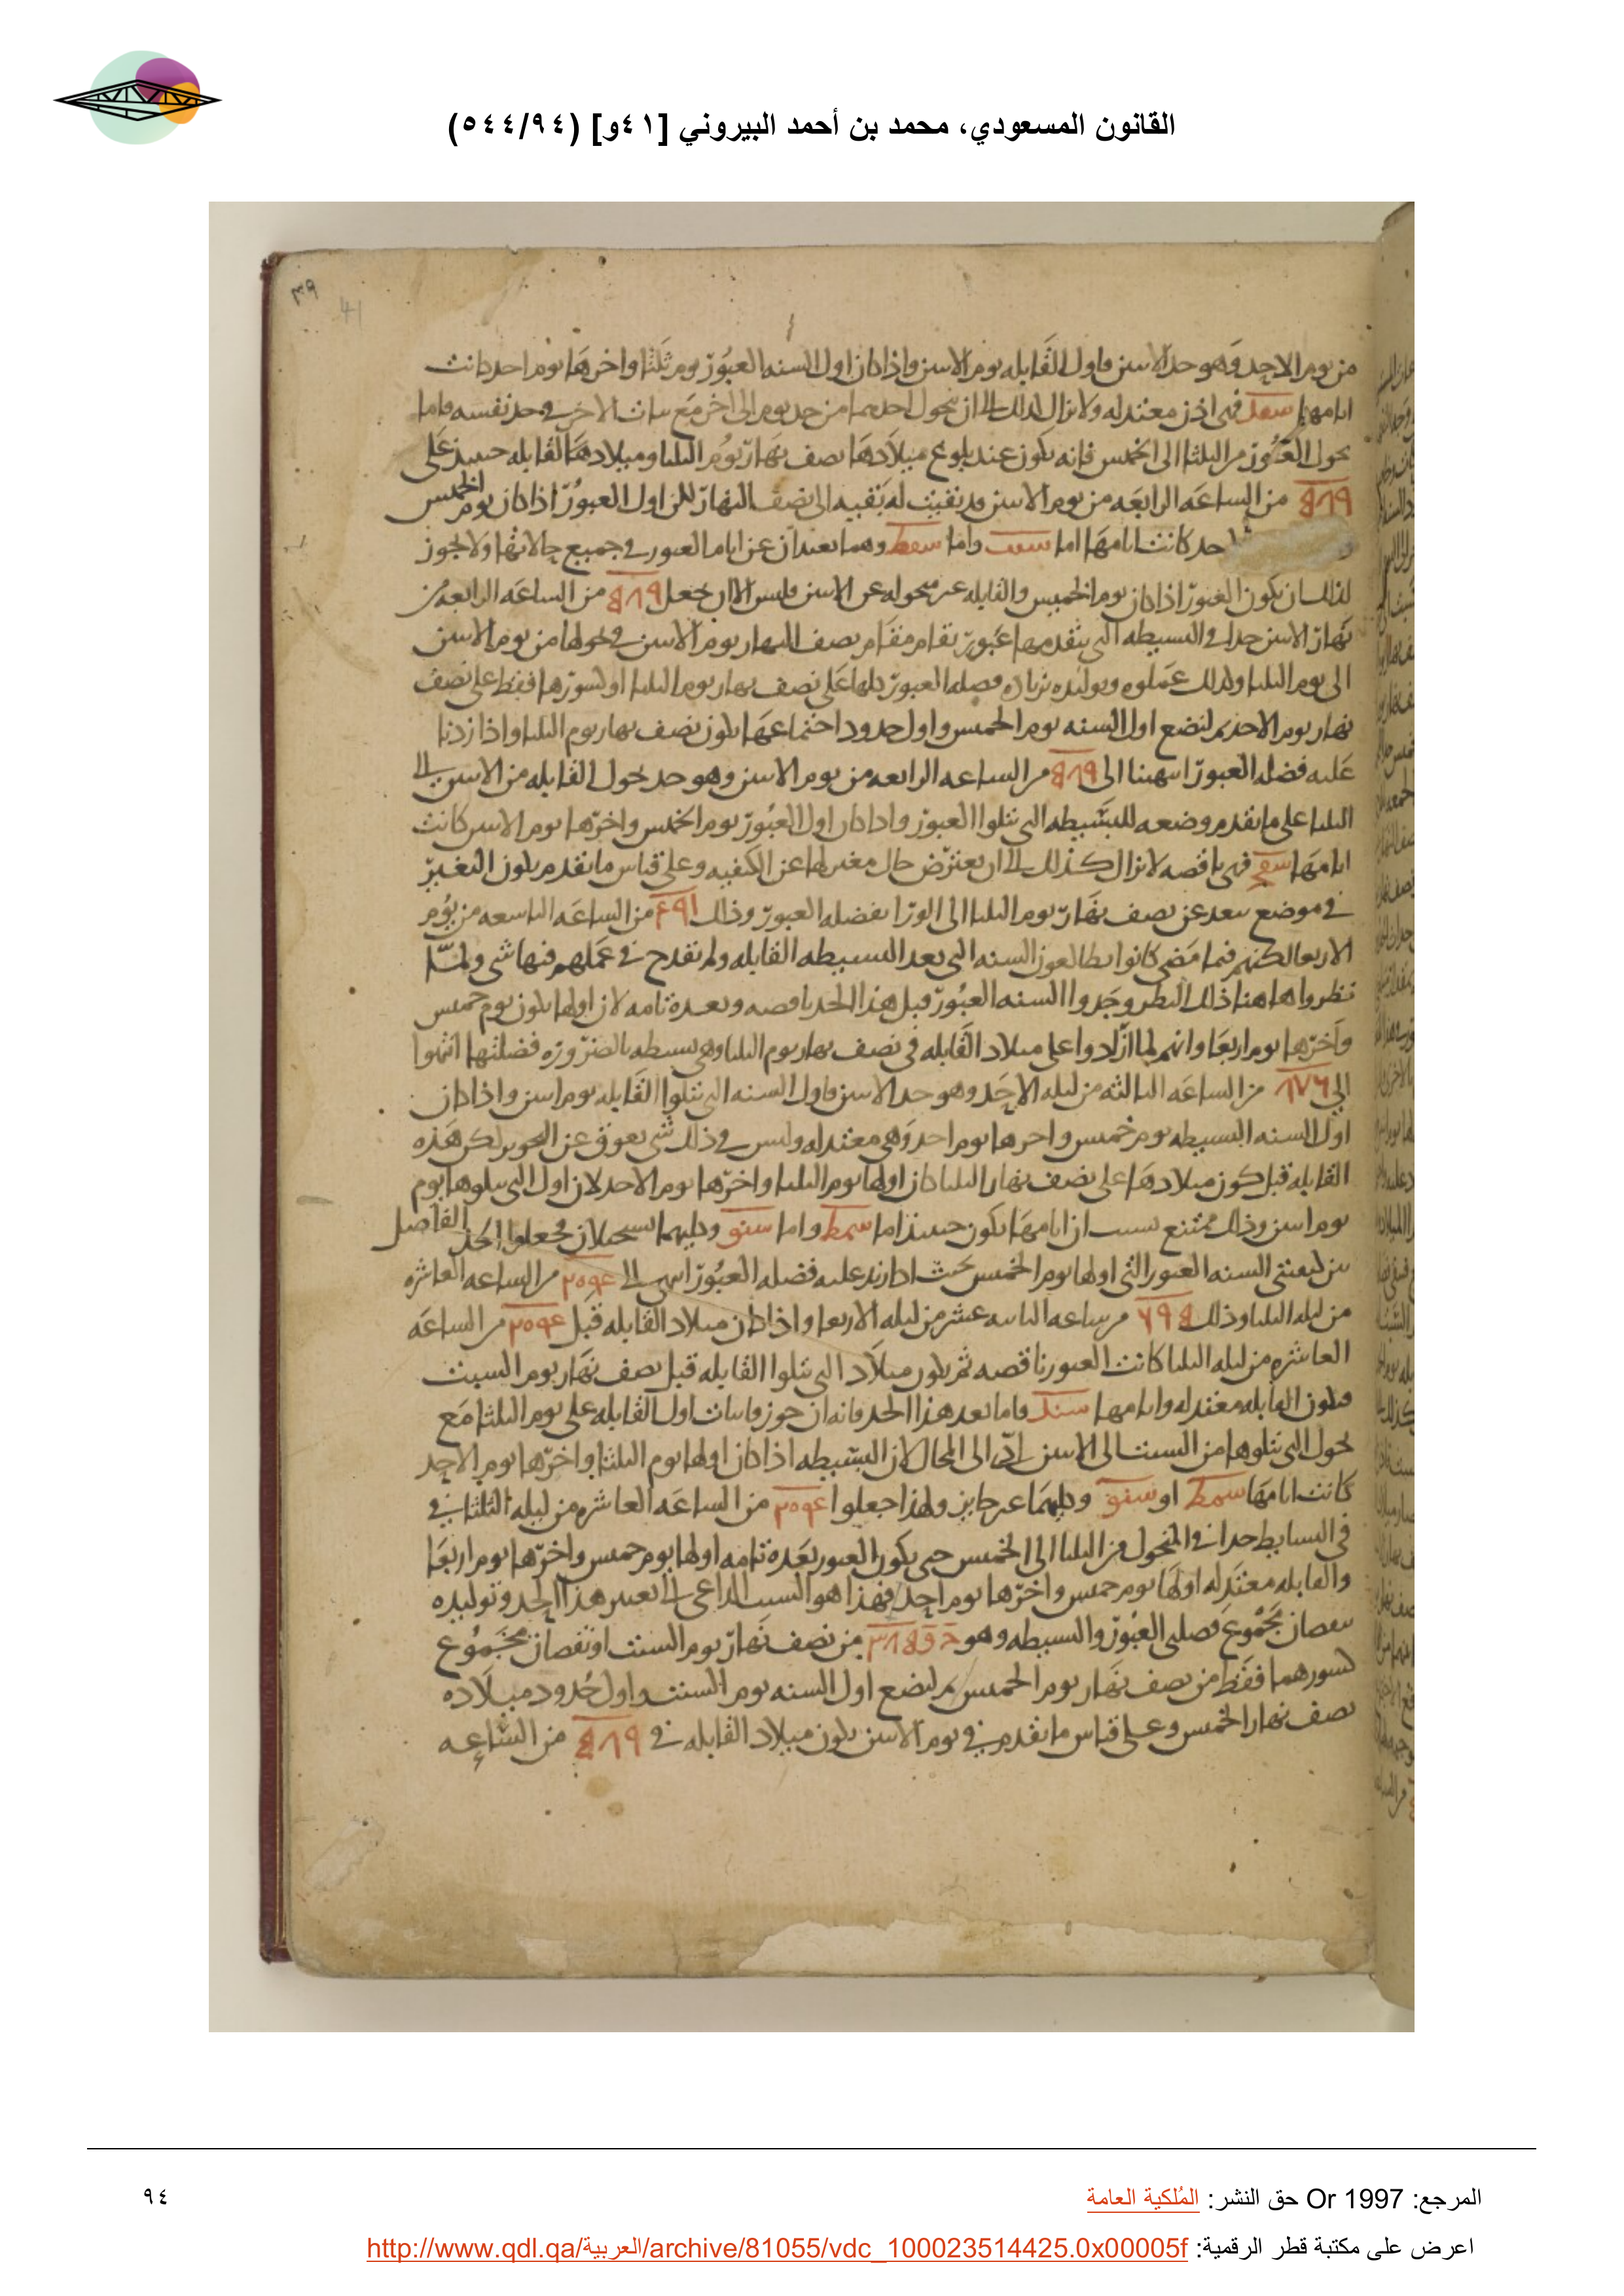 القانون المسعودي، محمد بن أحمد البيروني [٤١و] (٥٤٤/٩٤)
٣٩
41
من يوم الاحد وهو حد الاسن فاول القابله يوم الاسن واذا كان اول السنه العبور يوم ثلثا واخرها يوم احد كانت
ايامها شفد فهى اذن معتدله ولا يزال كذلك الى ان يتحول احدهما من حد يوم الى اخر مع ثبات الاخر فى حد نفسه فاما
تحول العبور من الثلثا الى الخميس فانه يكون عند بلوغ ميلادها نصف نهار يوم الثلثا وميلاد القابله حينئذ على
٨١٩ من الساعه الرابعه من يوم الاسن قد بقيت له بقيه الى نصف النهار لكن اول العبور اذا كان يوم الخميس
حد كانت ايامها اما واما وهما يبعدان عن ايام العبور فى جميع حالاتها ولا يجوز
لذلك ان يكون العبور اذا كان يوم الخميس والقابله غير متحوله عن الاسن فليس الا ان يجعل ٨١٩ من الساعه الرابعه من
نهار الاسن حدا فى البسيطه التى يتقدمها عبور يقام مقام نصف النهار يوم الاسن فى تحولها من يوم الاسن
الى يوم الثلثا وكذلك عملوه وتوليده بزياده فضله العبور كلها على نصف نهار يوم الثلثا او كسورها فقط على نصف
نهار يوم الاحد ثم لنضع اول السنه يوم الخميس واول حدود اجتماعها يكون نصف نهار يوم الثلثا واذا زدنا
عليه فضله العبور انتهينا الى ٨١٩ من الساعه الرابعه من يوم الاسن وهو حد تحول القابله من الاسن الى
الثلثا على ما تقدم وضعه للبسيطه التى تتلوا العبور واذا كان اول العبور يوم الخميس واخرها يوم الاسن كانت
ايامها شفج فهى ناقصه لا تزال كذلك الى ان يعترض حال مغير لها عن الكيفيه وعلى قياس ما تقدم يكون التغير
فى موضع يبعد عن نصف نهار يوم الثلثا الى الورا بفضله العبور وذلك ٤٩١ من الساعه التاسعه من يوم
الاربعا لكنهم فيما مضى كانوا يطالعون السنه التى بعد البسيطه القابله ولم يقدح فى عملهم فيها شى ولما
نظروا هاهنا ذلك النظر وجدوا السنه العبور قبل هذا الحد ناقصه وبعده تامه لان اولها يكون يوم خميس
واخرها يوم اربعا وانهم لما ازادوا على ميلاد القابله فى نصف نهار يوم الثلثا وهى بسيطه بالضروره فضلتها انتهوا
الى ١٧٦ من الساعه الثالثه من ليله الاحد وهو حد الاسن فاول السنه التى تتلوا القابله يوم اسن واذا كان
اول السنه البسيطه يوم خميس واخرها يوم احد وهى معتدله وليس فى ذلك شى يعوق عن التجويز لكن هذه
القابله قبل كون ميلادها على نصف نهار الثلثا كان اولها يوم الثلثا واخرها يوم الاحد لان اول التى يتلوها يوم
يوم اسن وذلك ممتنع بسبب ان ايامها يكون حينئذ اما شمط واما شنو وكليهما يستحيلان فجعلوا الحد الفاصل
بين كيفيتى السنه العبور التى اولها يوم الخميس بحيث اذا زيد عليه فضله العبور انتهى الى من الساعه العاشره
من ليله الثلثا وذلك من ساعه الثانيه عشر من ليله الاربعا واذا كان ميلاد القابله قبل من الساعه
العاشره من ليله الثلثا كانت العبور ناقصه ثم يكون ميلاد التى تتلوا القابله قبل نصف نهار يوم السبت
فيكون القابله معتدله وايامها شند فاما بعد هذا الحد فانه ان جوز فاثبات اول القابله على يوم الثلثا مع
تحول التى تتلوها من السبت الى الاسن ادى الى المحال لان البسيطه اذا كان اولها يوم الثلثا واخرها يوم الاحد
كانت ايامها شمط او شنو وكليهما غير جايز ولهذا جعلوا من الساعه العاشره من ليله الثلثا فى
فى البسايط حدا فى التحول من الثلثا الى الخميس حتى يكون العبور بعده تامه اولها يوم خميس واخرها يوم اربعا
والقابله معتدله اولها يوم خميس واخرها يوم احد فهذا هو السبب الداعى الى تعيين هذا الحد وتوليده
بنقصان مجموع فضلتى العبور والبسيطه وهو من نصف نهار يوم السبت او نقصان مجموع
كسورهما فقط من نصف نهار يوم الخميس ثم لنضع اول السنه يوم السبت واول حدود ميلاده
نصف نهار الخميس وعلى قياس ما تقدم فى يوم الاسن يكون ميلاد القابله فى ٨١٩ من الساعه
المرجع: Or 1997 حق النشر: المُلكية العامة
٩٤
اعرض على مكتبة قطر الرقمية: http://www.qdl.qa/العربية/archive/81055/vdc_100023514425.0x00005f